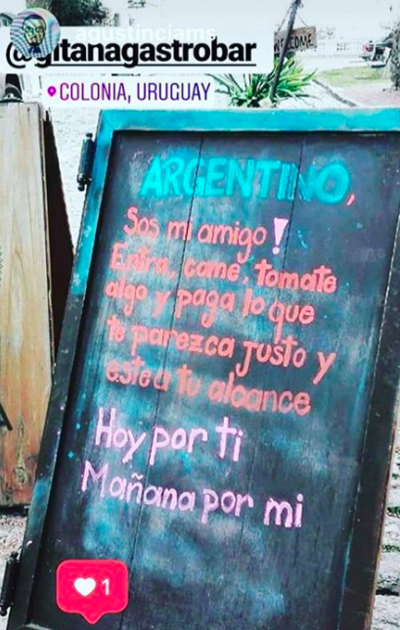 agustinciams
@gitanagastrobar
COLONIA, URUGUAY
WELCOME
ARGENTINO,
Sos mi amigo!
Entra, come, tomate
algo y paga lo que
te parezca justo y
este a tu alcance
Hoy por ti
Mañana por mi
1